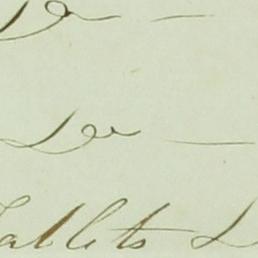 Do —
Do —
Tablets D